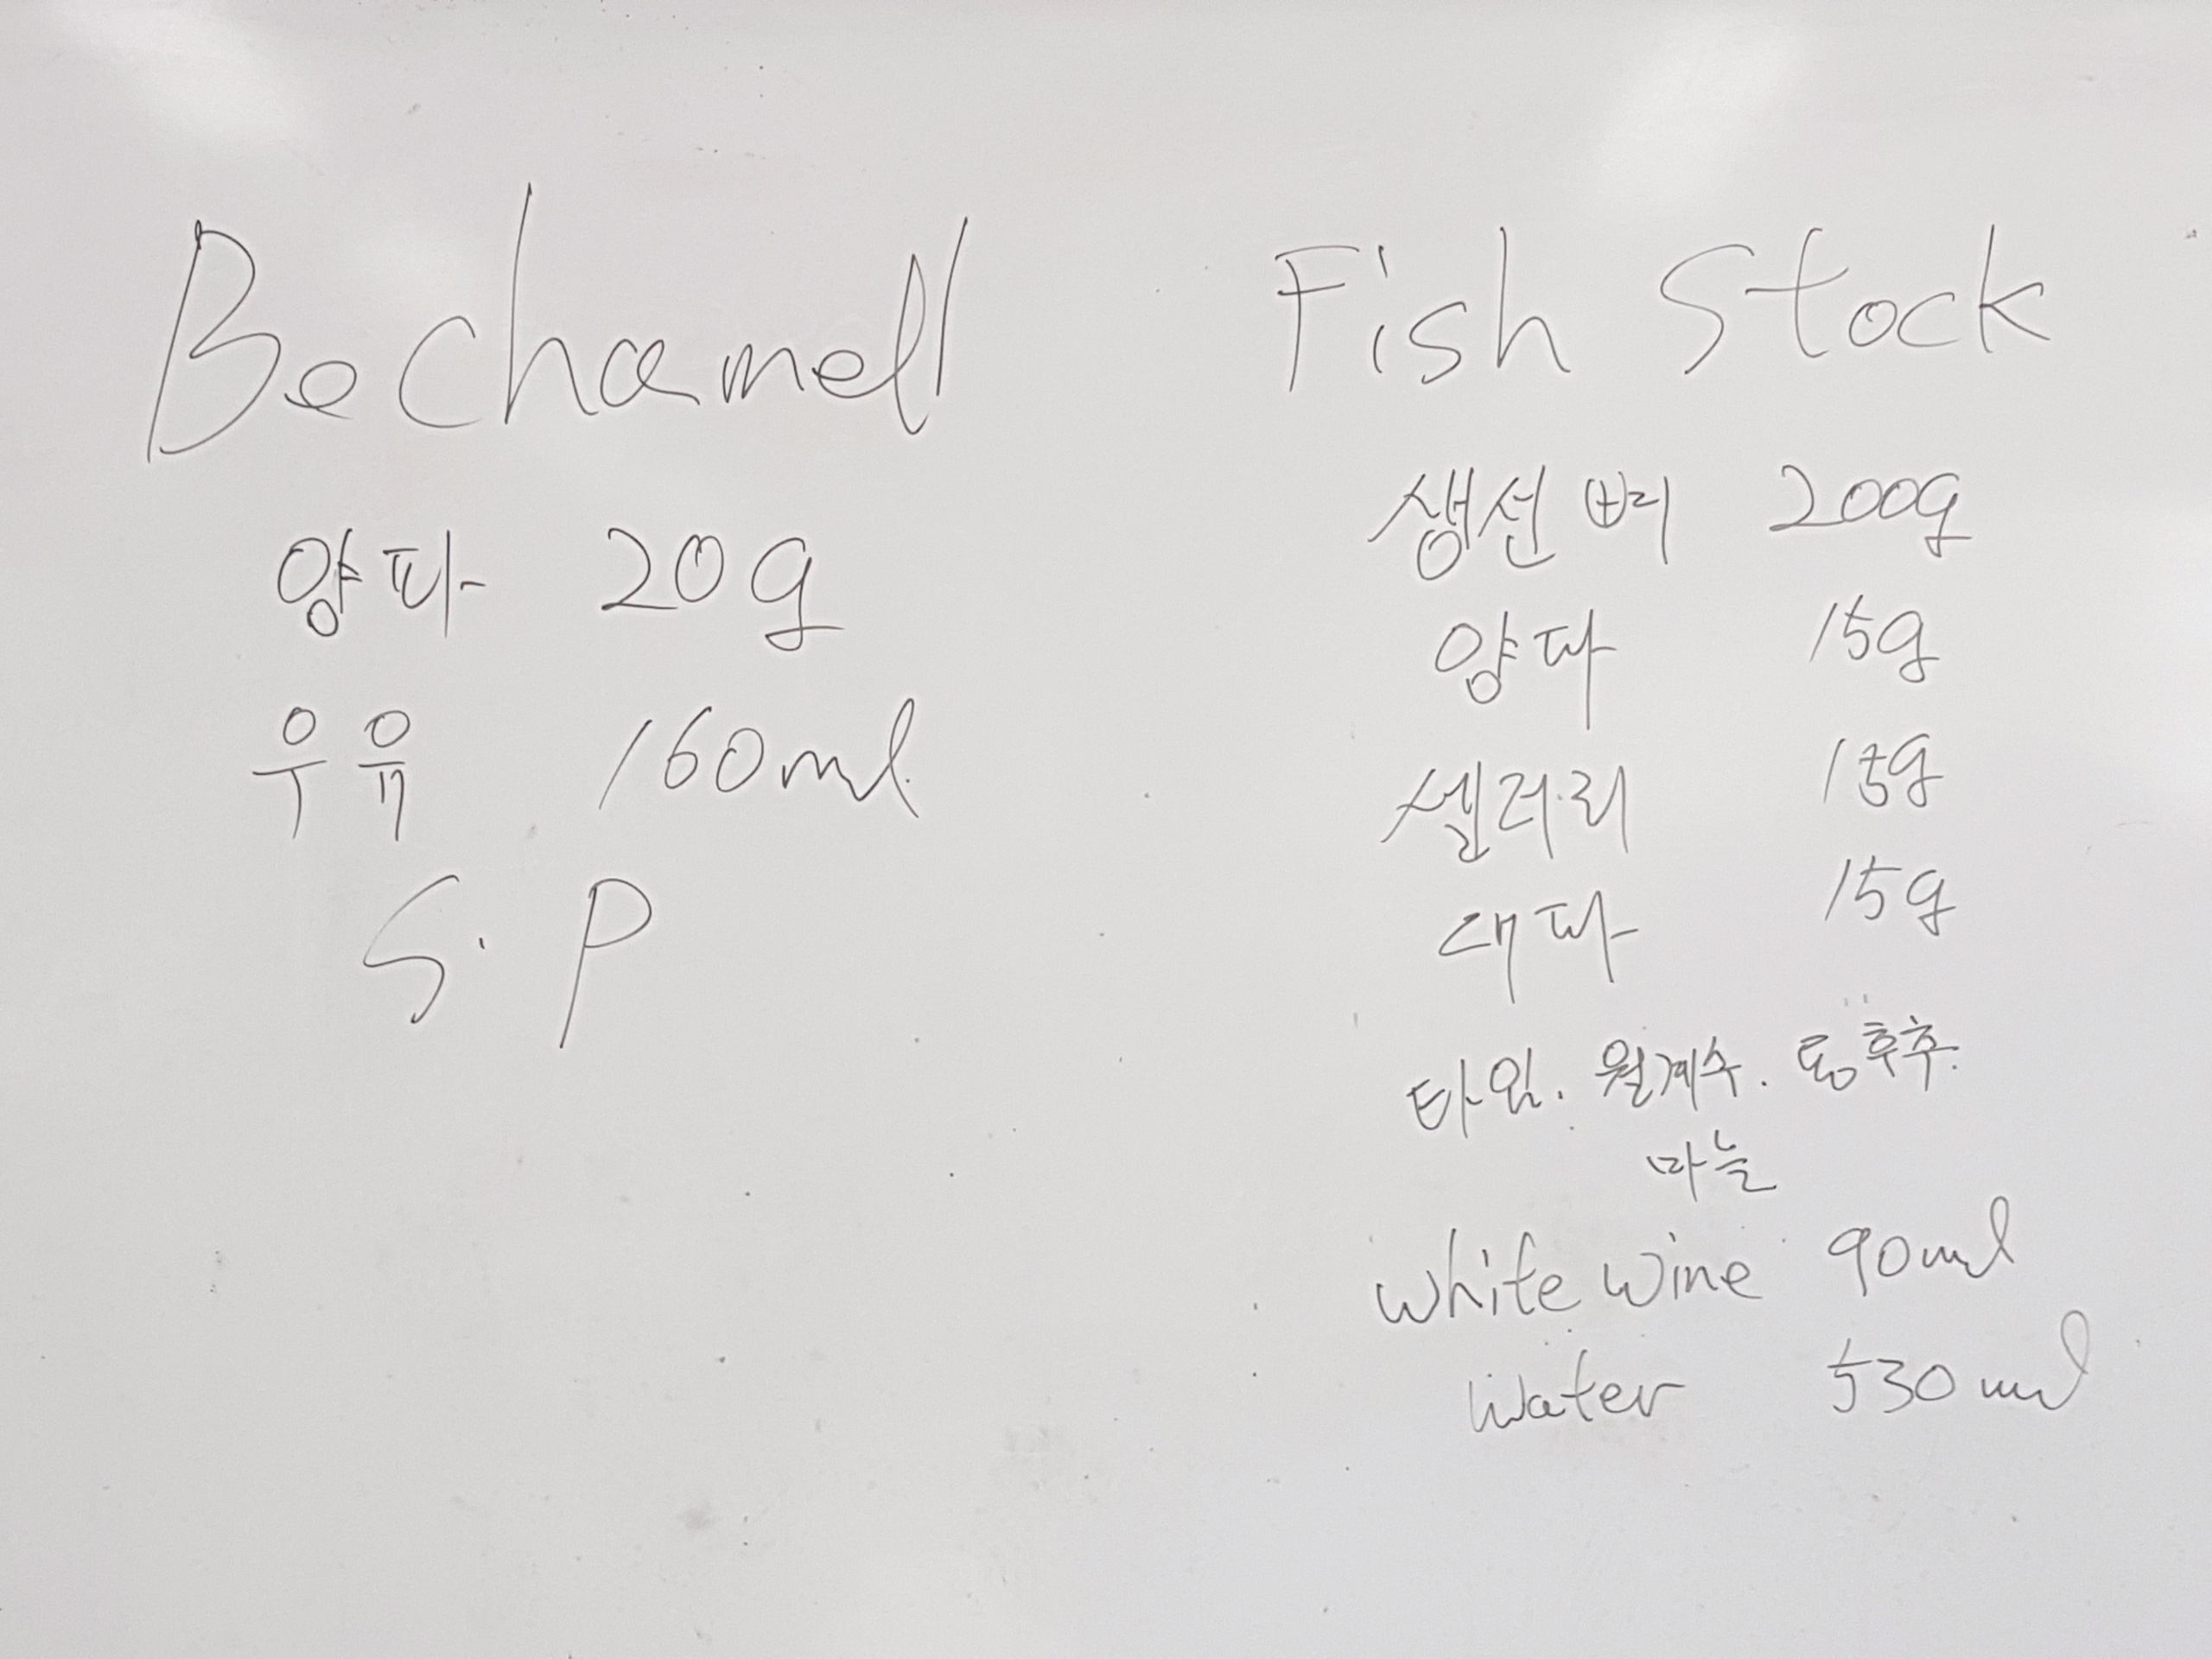 Bechamell
양파 20g
우유 160ml
S. P
Fish Stock
생선 뼈 200g
양파 15g
셀러리 15g
대파 15g
타임. 월계수. 통후추.
마늘
white wine 90ml
water 530ml